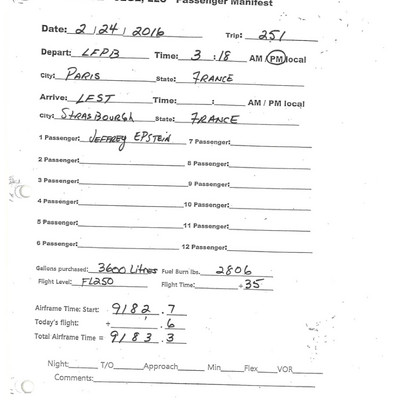 Passenger Manifest
Date: 2 / 24 / 2016 Trip: 251
Depart: LFPB Time: 3 : 18 AM / PM local
City: PARIS State: FRANCE
Arrive: LFST Time: : AM / PM local
City: STRASBOURGH State: FRANCE
1 Passenger: JEFFREY EPSTEIN 7 Passenger:
2 Passenger: 8 Passenger:
3 Passenger: 9 Passenger:
4 Passenger: 10 Passenger:
5 Passenger: 11 Passenger:
6 Passenger: 12 Passenger:
Gallons purchased: 3600 Litres Fuel Burn lbs. 2806
Flight Level: FL250 Flight Time: +35
Airframe Time: Start: 9182.7
Today's flight: + .6
Total Airframe Time = 9183.3
Night: T/O Approach Min Flex VOR
Comments: